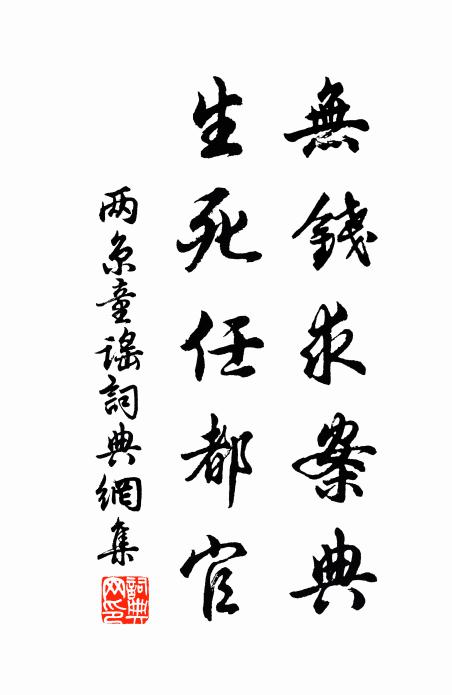 無錢求案典
生死任都官
两京童謡詞典網集
詞典網印